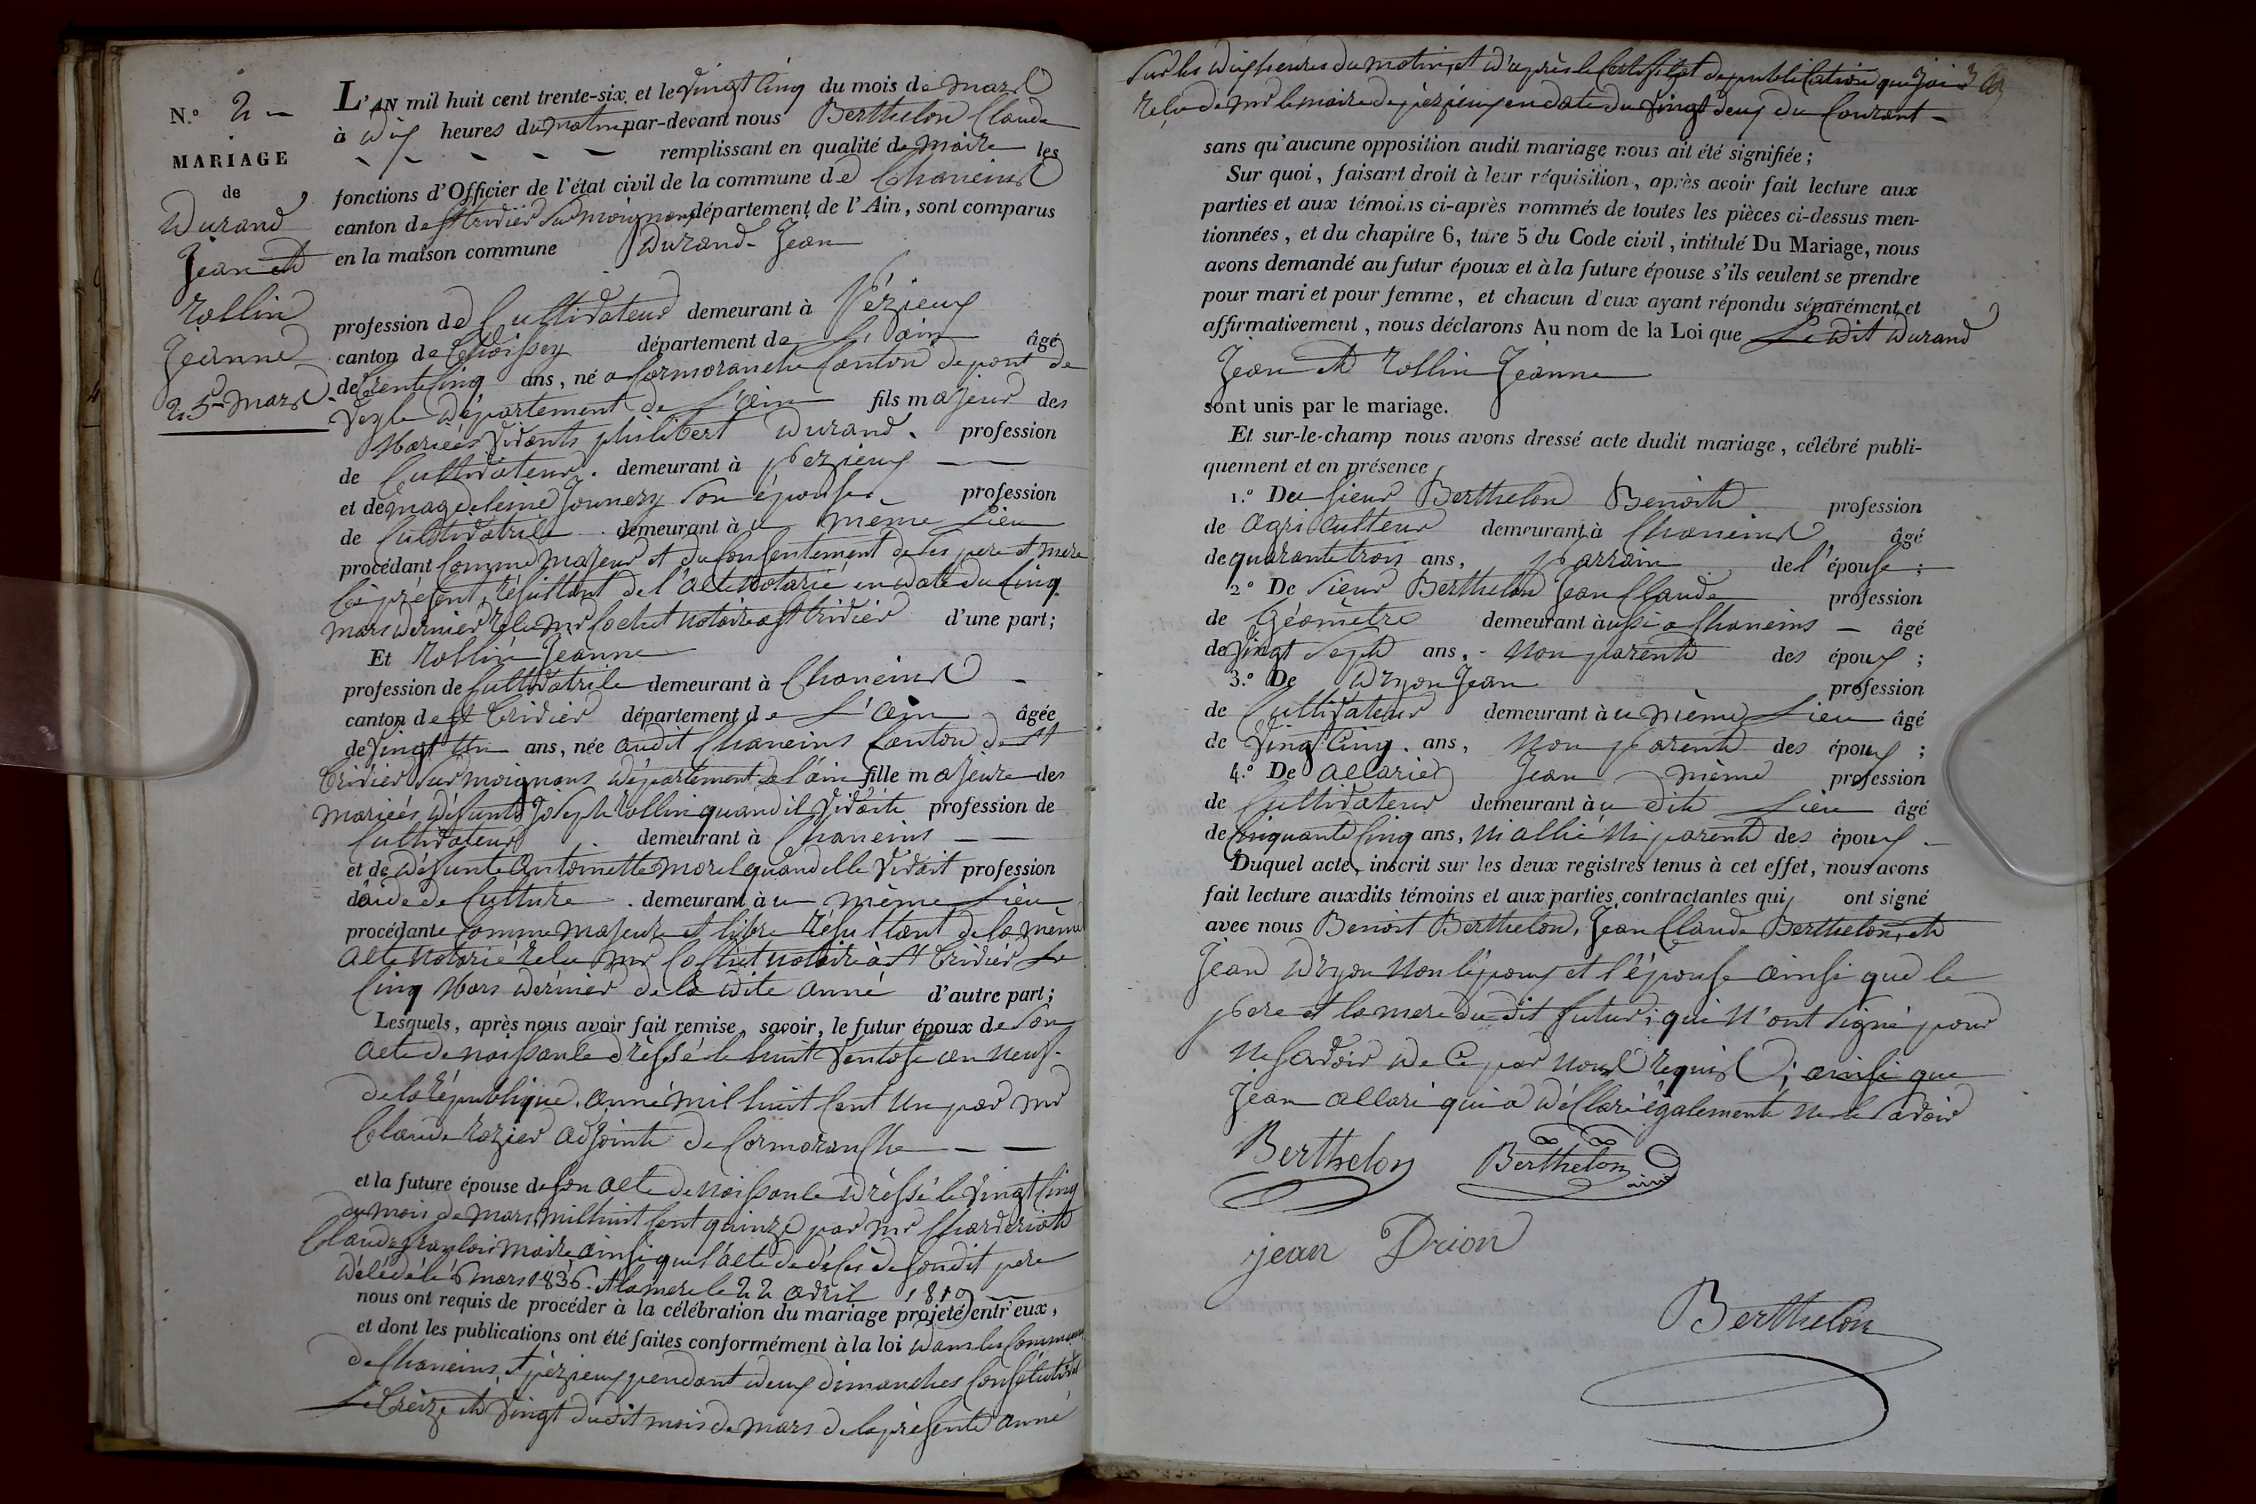 N.° 2 —
MARIAGE
de
Durand
Jean et
Rollin
Jeanne
25 Mars
L'AN mil huit cent trente-six, et le Vingt Cinq du mois de Mars
à dix heures du matin par-devant nous Berthelon Claude
remplissant en qualité de Maire les
fonctions d'Officier de l'état civil de la commune de Chaneins
canton de St trivier Sur moignans département de l'Ain, sont comparus
en la maison commune Durand Jean
profession de Cultivateur demeurant à Pézieux
canton de Thoissey département de L'ain âgé
de trente Cinq ans, né a Cormoranche Canton de pont de
Vesle département de L'ain fils majeur des
Mariées Vivants philibert Durand. profession
de Cultivateur. demeurant à pezieux
et de magdeleine son épouse profession
de Cultivatrice demeurant à u même Lieu
procédant Comme majeur et du Consentement de ses pere et mere
Ci présent, résultant de l'acte notarié en date du Cinq
mars dernier relu Mr Cochet notaire a St trivier d'une part;
Et Rollin Jeanne
profession de Cultivatrice demeurant à Chaneins
canton de St trivier département de L'ain âgée
de Vingt Un ans, née audit Chaneins Canton de St
trivier Sur moignans département de l'ain fille majeure des
mariées défunts Joseph Rollin quand il Vivoite profession de
Cultivateur demeurant à Chaneins
et de défunte Antoinette morel quand elle Vivoit profession
d'aide de Culture. demeurant à u même Lieu
procédante Comme majeure et libre résultant de la même
acte notarié relu Mr Cochet notaire à St trivier Le
Cinq Mars dernier de la dite anné d'autre part;
Lesquels, après nous avoir fait remise, savoir, le futur époux de Son
acte de naissance dressé le huit Ventose an neuf
de la république, anné mil huit Cent Un par Mr
Claude rozier adjoint de Cormoranche
et la future épouse de son acte de naissance dréssé le Vingt Cinq
du mois de mars mil huit Cent quinze par Mr
Claude françois maire ainsi que l'acte de décès de sondit pere
décédé le 6 mars 1836. et la mere le 22 avril
nous ont requis de procéder à la célébration du mariage projeté entr'eux,
et dont les publications ont été faites conformément à la loi dans les Communes
de Chaneins et pézieux pendant deux dimanches Consécutives
Le treize et Vingt dudit mois de mars de la présente anné
Sur les dix heures du matin, et d'après le Certificat de publication que j'ai
reçu de Mr le maire de pézieux en date du Vingt deux du Courant
sans qu'aucune opposition audit mariage nous ait été signifiée;
Sur quoi, faisant droit à leur réquisition, après avoir fait lecture aux
parties et aux témoins ci-après nommés de toutes les pièces ci-dessus men-
tionnées, et du chapitre 6, titre 5 du Code civil, intitulé Du Mariage, nous
avons demandé au futur époux et à la future épouse s'ils veulent se prendre
pour mari et pour femme, et chacun d'eux ayant répondu séparément et
affirmativement, nous déclarons Au nom de la Loi que Le dit Durand
Jean et Rollin Jeanne
sont unis par le mariage.
Et sur-le-champ nous avons dressé acte dudit mariage, célébré publi-
quement et en présence
1.° Du sieur Berthelon Benoit profession
de agriculteur demeurant à Chaneins âgé
de quarante trois ans, parrain de l'épouse;
2.° De Sieur Berthelon Jean Claude profession
de Géomètre demeurant aussi a Chaneins — âgé
de Vingt Sept ans, Non parent des époux;
3.° De Dryon Jean profession
de Cultivateur demeurant à u même Lieu âgé
de Vingt Cinq ans, Non parent des époux;
4.° De allarie Jean même profession
de Cultivateur demeurant à u dit Lieu âgé
de Cinquante Cinq ans, ni allié Ni parent des époux.
Duquel acte, inscrit sur les deux registres tenus à cet effet, nous avons
fait lecture auxdits témoins et aux parties contractantes qui ont signé
avec nous Benoit Berthelon, Jean Claude Berthelon, et
Jean Dryon Non l'époux et l'épouse ainsi que le
pere et la mere du dit futur; qui N'ont Signé pour
ne Savoir de Ce par Nous requis; ainsi que
Jean allari qui a déclaré également ne le Savoir
Berthelon Berthelon
jean Drion
Berthelon